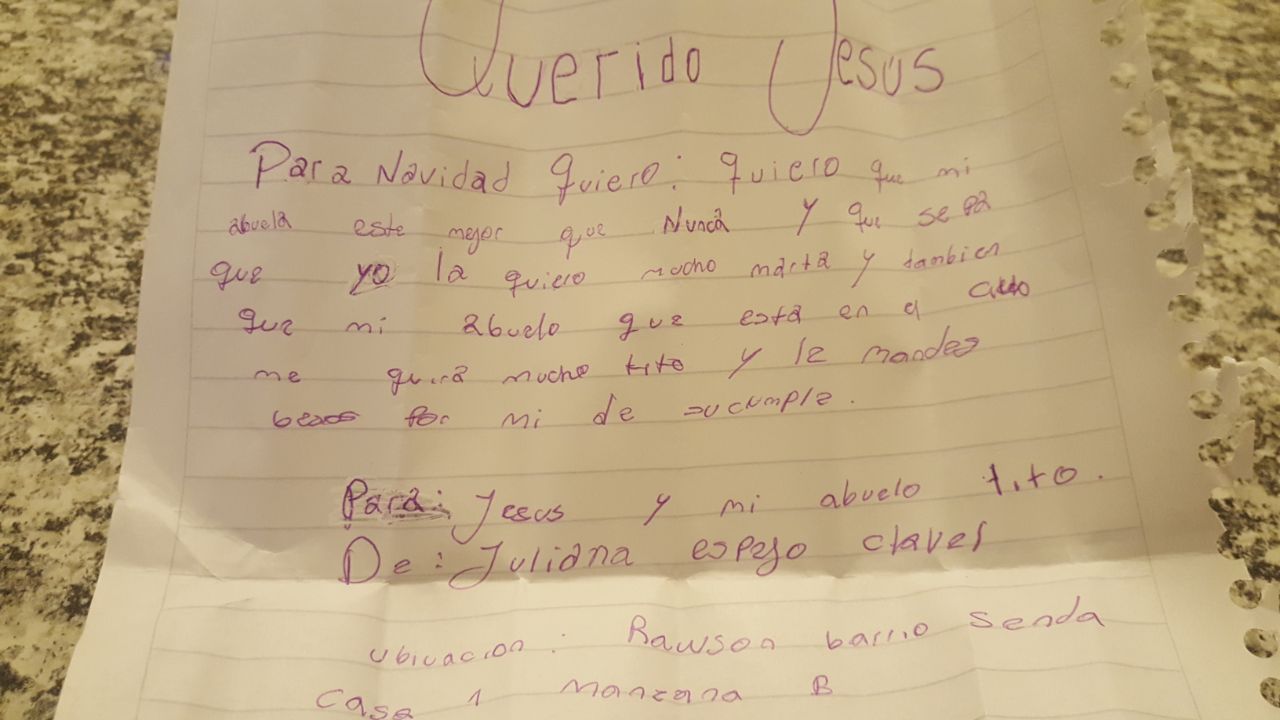 Querido Jesus
Para Navidad quiero: quiero que mi
abuela este mejor que Nunca y que sepa
que yo la quiero mucho marta y tambien
que mi abuelo que esta en el
me quira mucho tito y le mandes
besos por mi de su cumple.
Para: Jesus y mi abuelo tito.
De: Juliana espejo clavel
ubicacion: Rawson barrio senda
casa 1 manzana B